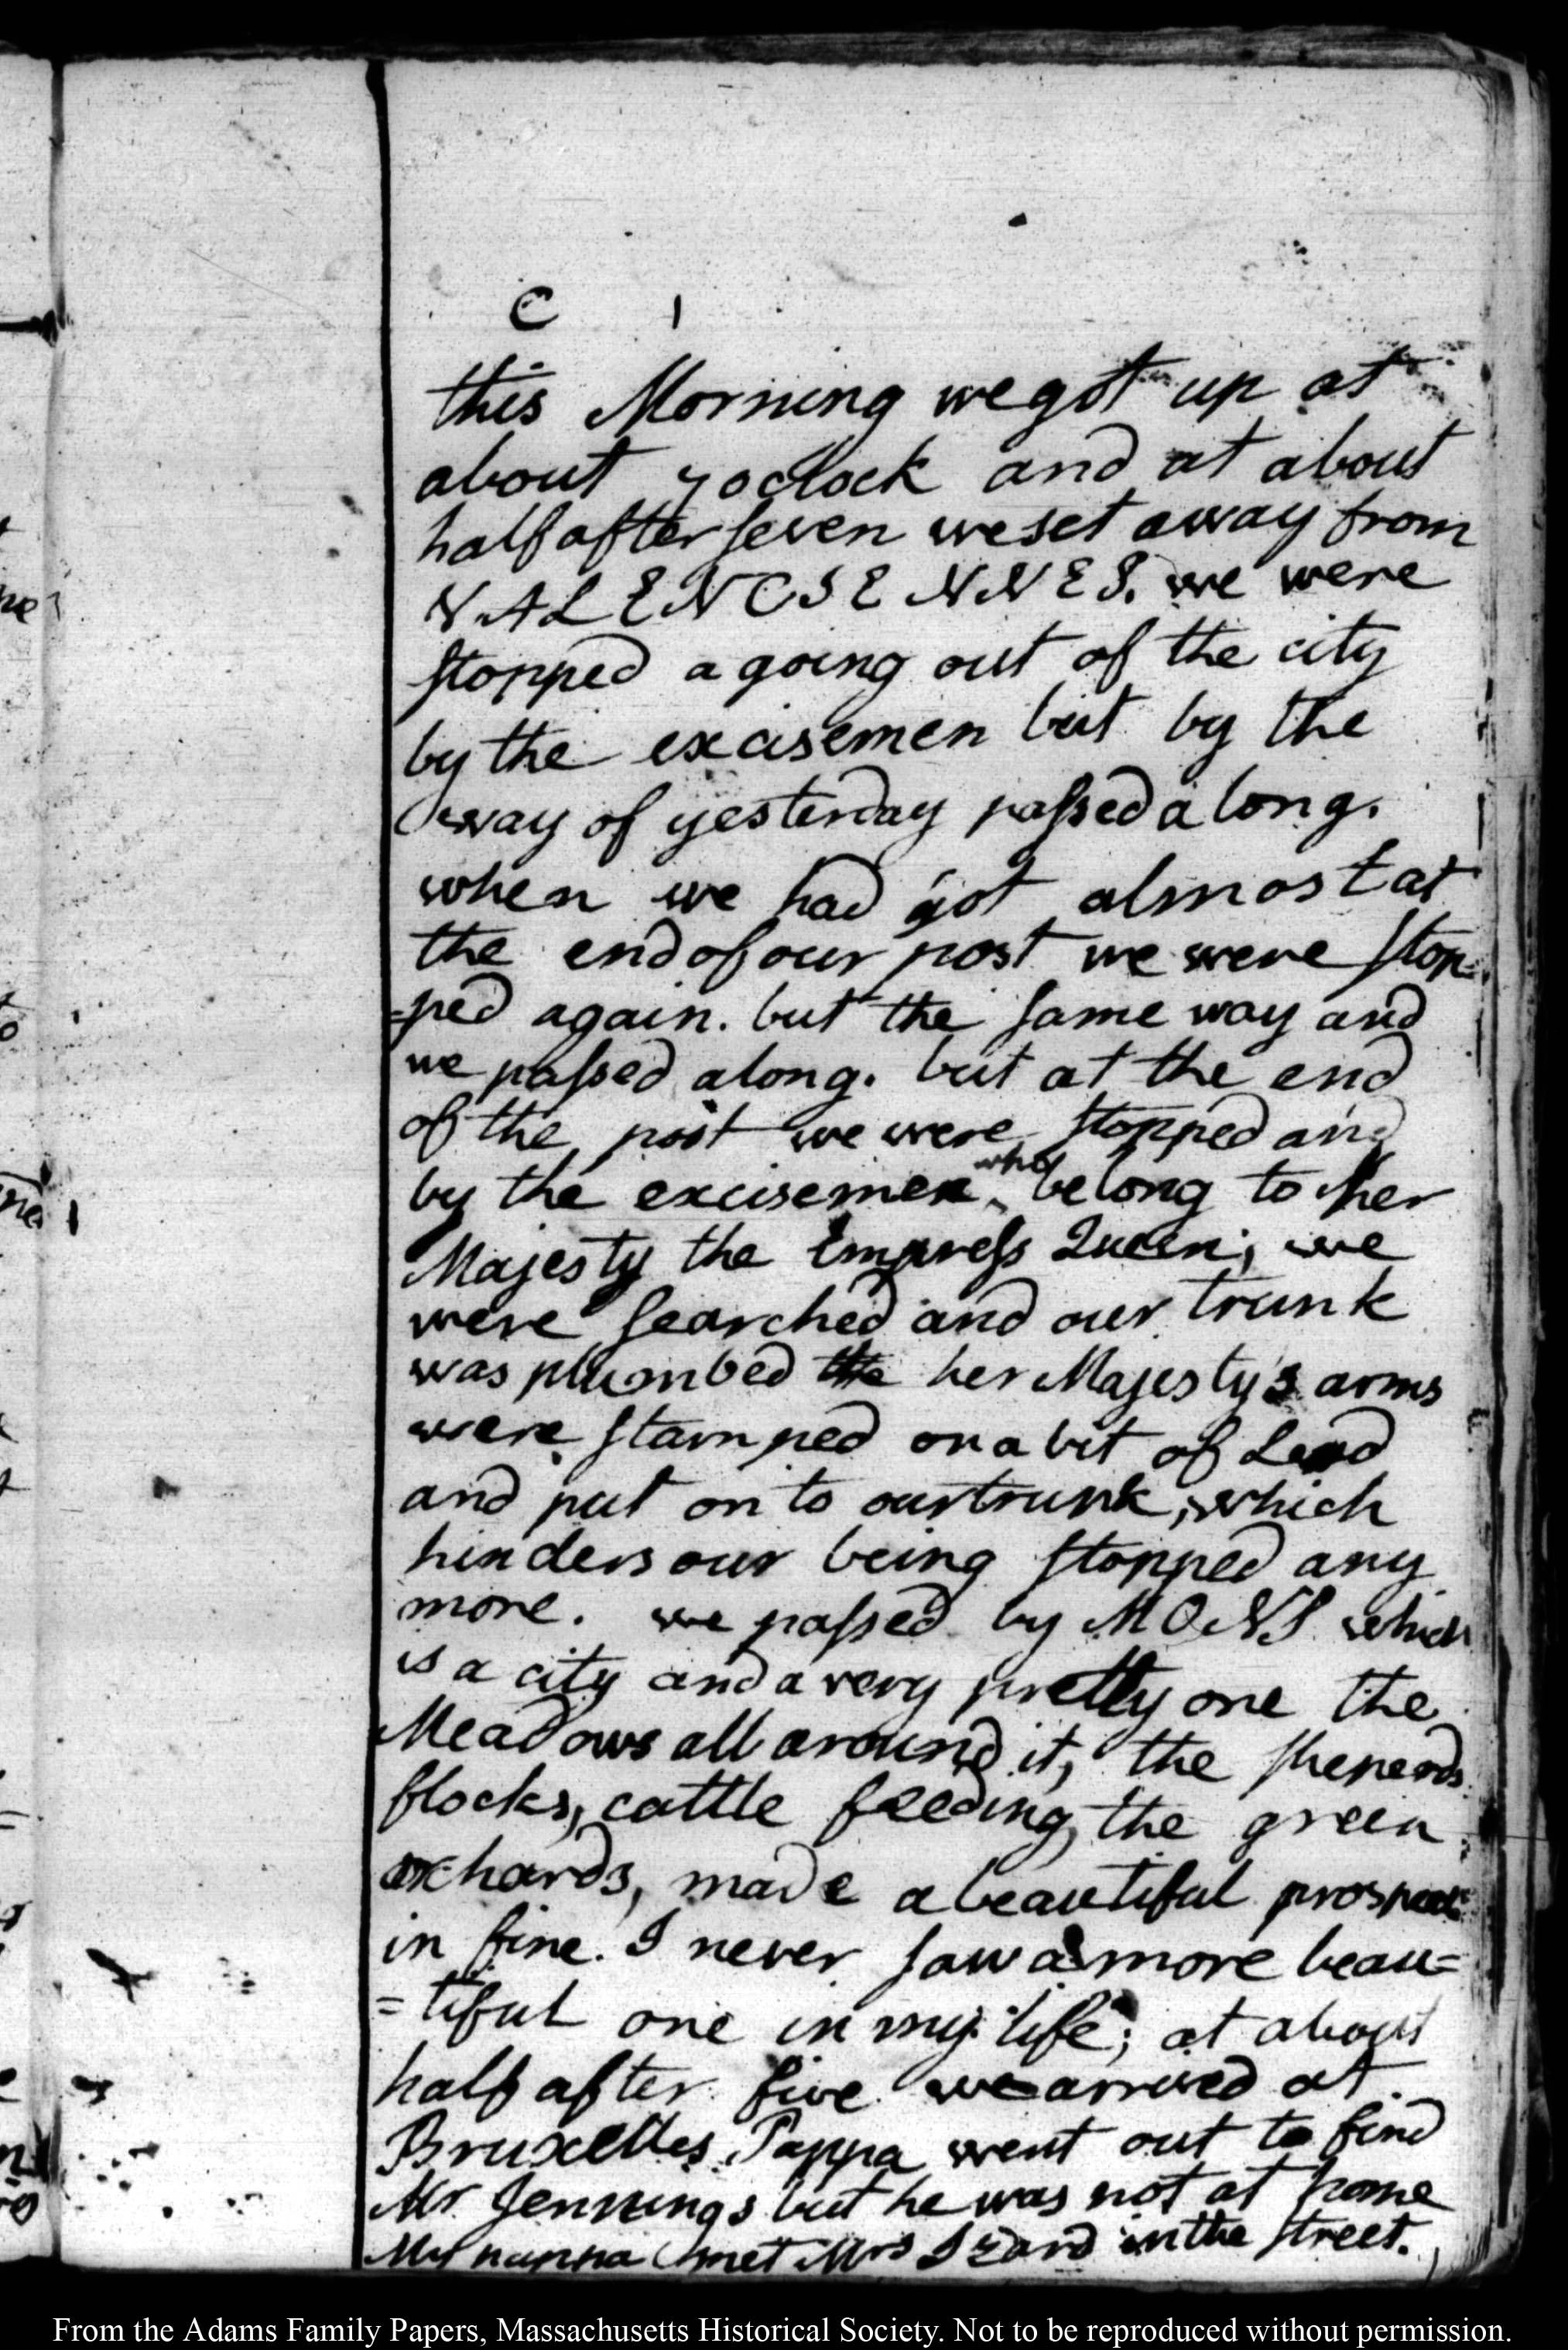 C 1
this Morning we got up at
about 7 oclock and at about
half after seven we set away from
VALENCSENNES. we were
stopped a going out of the city
by the excisemen but by the
way of yesterday passed a long.
when we had got almost at
the end of our post we were stop=
=ped again. but the same way and
we passed along. but at the end
of the post we were stopped and
by the excisemen who belong to her
Majesty the Empress Queen; we
were searched and our trunk
was plumbed the her Majesty's arms
were stamped on a bit of Lead
and put on to our trunk, which
hinders our being stopped any
more. we passed by MONS which
is a city and a very pretty one the
Meadows all around it, the sheperds
flocks, cattle feeding, the green
orchards, made a beautiful prospect
in fine. I never saw a more beau=
=tiful one in my life; at about
half after five we arrived at
Bruxelles. Pappa went out to find
Mr. Jennings but he was not at home
My pappa met Mrs Izard in the street.
From the Adams Family Papers, Massachusetts Historical Society. Not to be reproduced without permission.